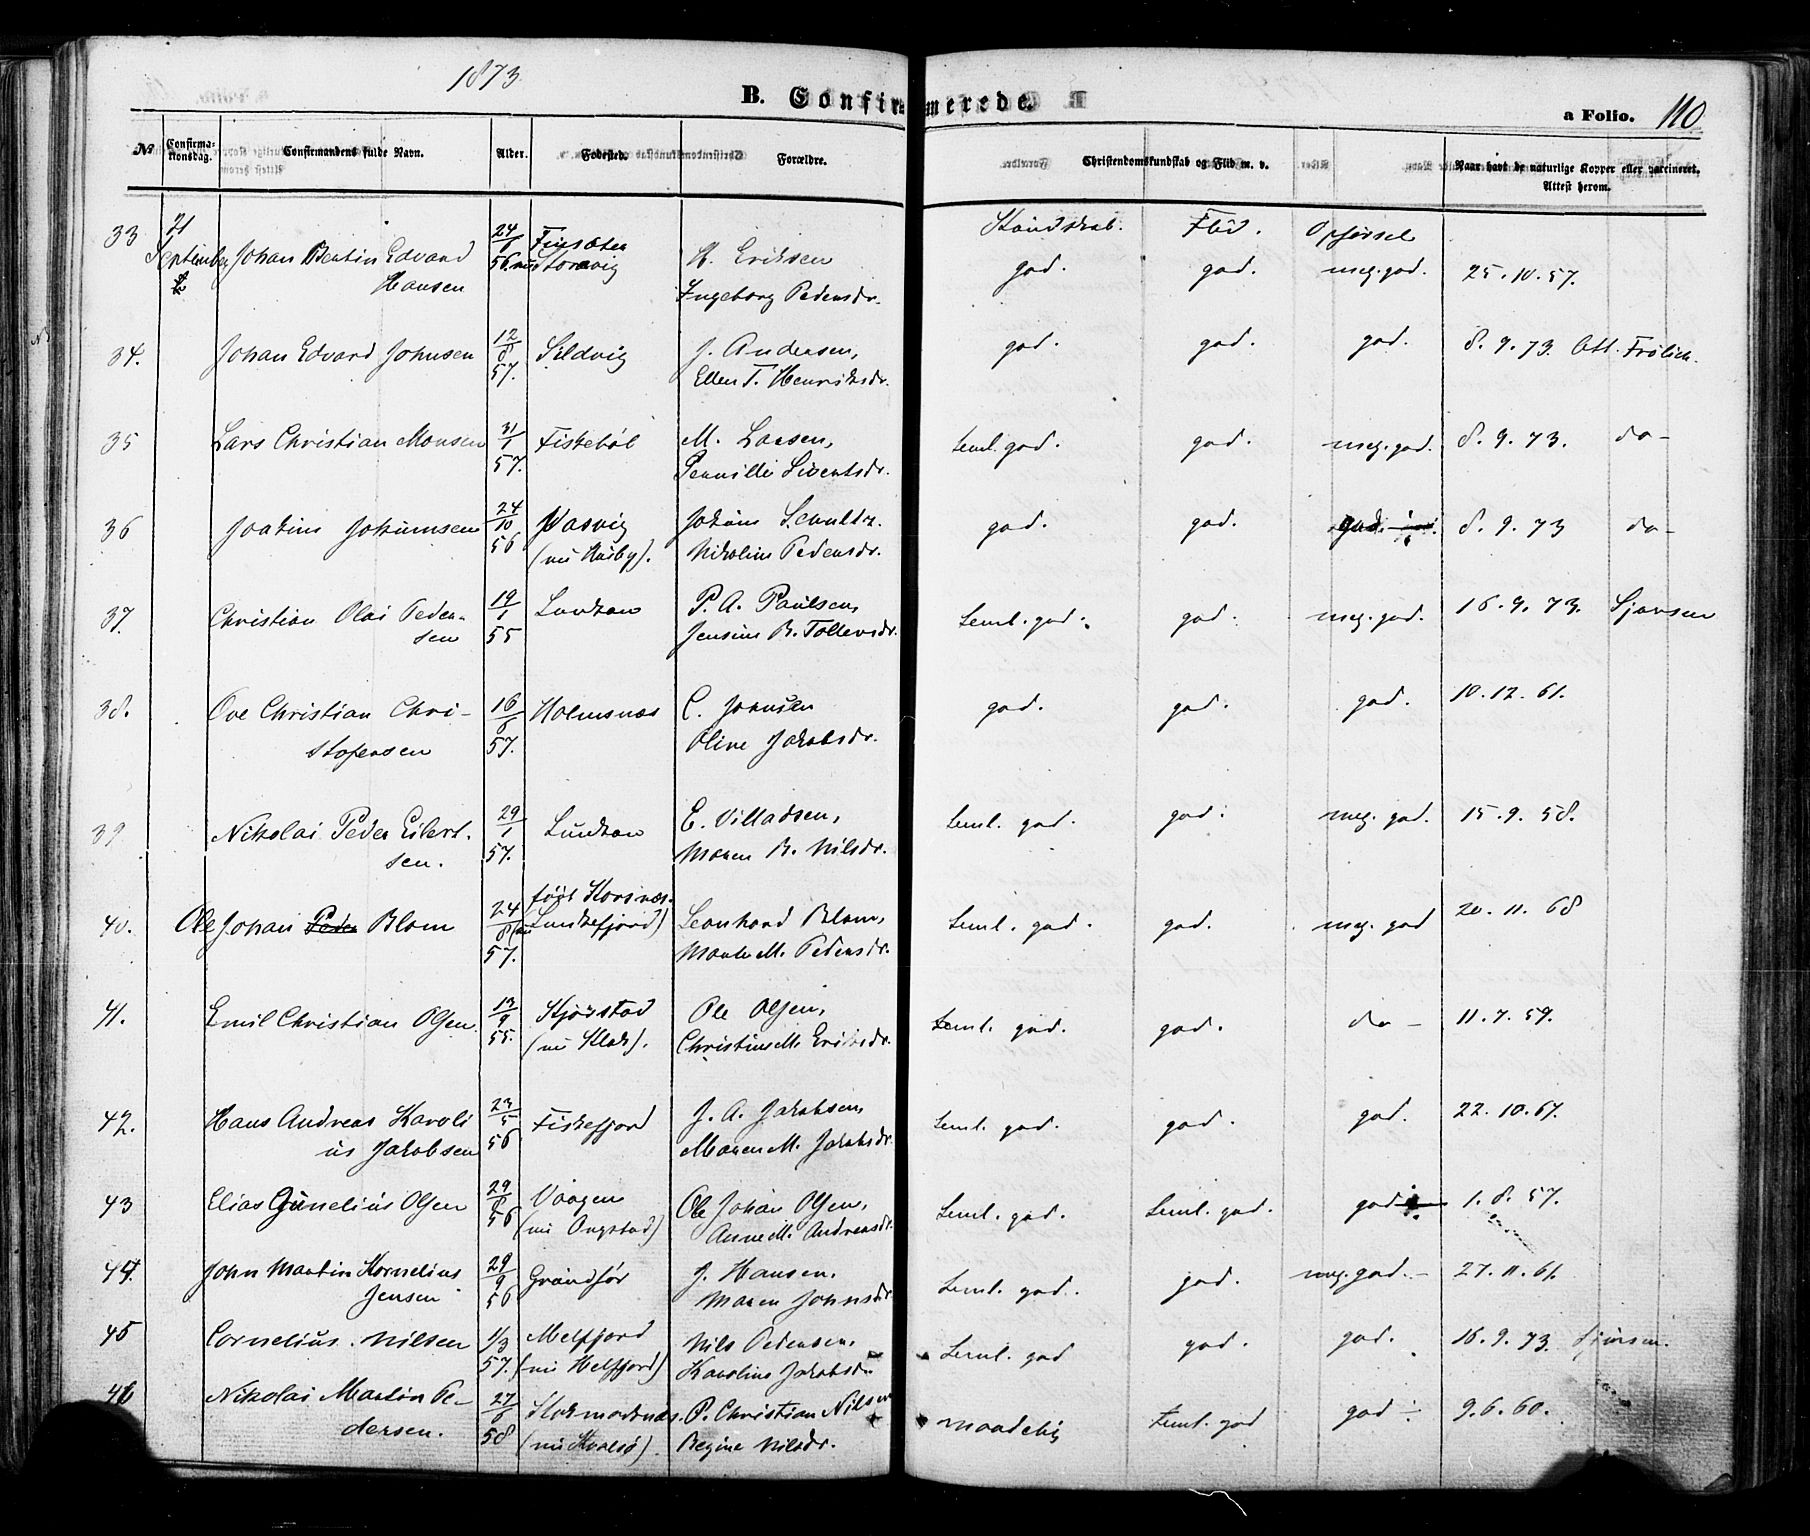 1873.
B. Confirmerede.
a Folio. 110
No Confirmationsdag. Confirmandens fulde Navn. Alder. Fødested. Forældre. Christendomskundskab og Flid m. v. Naar havt de naturlige Kopper eller vaccineret. Attest herom.
Kundskab. Flid. Opførsel
33 21 September Johan Bentin Edvard Hansen 24/6 56. Finsæter nu Storavig H. Eriksen Ingeborg Pedersdr. god. god. meg. god. 25.10.57.
34. Johan Edvard Johnsen 12/8 57. Sildvig J. Andersen, Ellen T. Henriksdr. god. god. god. 8.9.73. Att. Frölich.
35 Lars Christian Monsen 31/1 57. Fiskeböl M. Larsen, Pernille Sivertsdr. Teml. god. god. meg. god. 8.9.73. do-
36 Joakim Johannsen 24/10 56 Hasvig (nu Husby). Johan Schultz. Nikoline Pedersdr. god. god. god. 8.9.73 do-
37. Christian Olai Pedersen 19/1 55 Lunkan P. A. Paulsen, Jensine B. Tollevsdr. Teml. god. god. meg. god. 16.9.73. Sjursen
38. Ove Christian Christofersen 16/6 57. Holmsnæs C. Jonsen Oline Jakobsdr. god. god. god. 10.12.61.
39. Nikolai Peder Eilertsen. 29/1 57. Lunkan E. Villadsen, Maren B. Nilsdr. Teml. god. god. meg. god. 15.9.58.
40. Ole Johan Peder Blom 24/8 57. født Korsnæs. (nu Lunkefjord) Leonhard Blom, Marte M. Pedersdr. Teml. god. god. meg. god 20.11.68
41. Emil Christian Olsen. 13/9 55. Kjørstad (nu Klak). Ole Olsen, Christine M. Eriksdr. Teml. god. god. do- 11.7.59.
42. Hans Andreas Karolius Jakobsen 23/5 56 Fiskefjord J. A. Jakobsen, Maren M. Jakobsdr. Teml. god. god. god. 22.10.67.
43 Elias Gunelius Olsen 29/8 56 Vaagen (nu Ongstad) Ole Johan Olsen, Anne M. Andreasdr. Teml. god. Teml. god. god 1.8.57.
44. John Martin Kornelius Jensen 29/9 56 Grundfør J. Hansen. Maren Johnsdr. Teml. god. god. meg. god. 27.11.61.
45 Cornelius. Nilsen 1/3 57. Melfjord (nu Melfjord) Nils Pedersen, Karoline Jakobsdr. Teml. god god. god. 16.9.73. Sjursen.
46 Nikolai Martin Pedersen. 27/6 58 Stokmarknæs. (nu Kvalsø). P. Christian Nilsen Regine Nilsdr. maadelig Teml. god god 9.6.60.